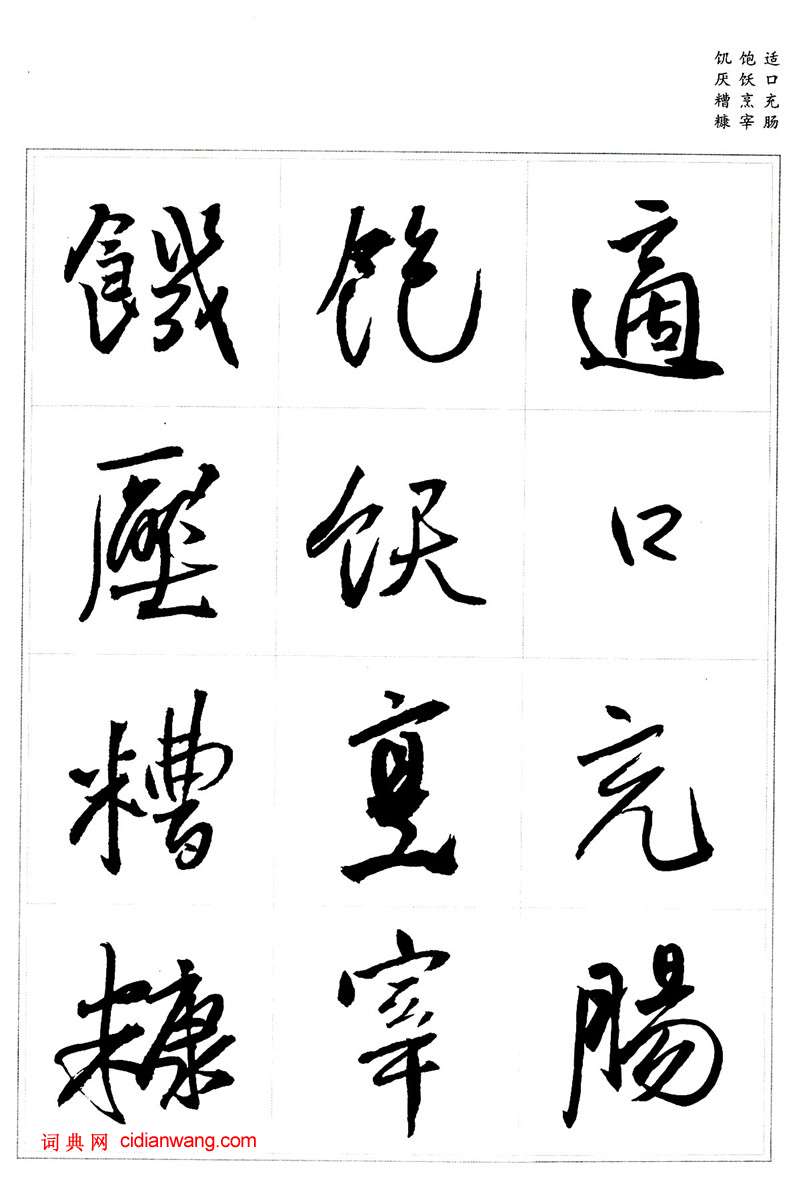 适口充肠
饱饫烹宰
饥厌糟糠
適口充腸
飽飫烹宰
饑壓糟糠
词典网 cidianwang.com